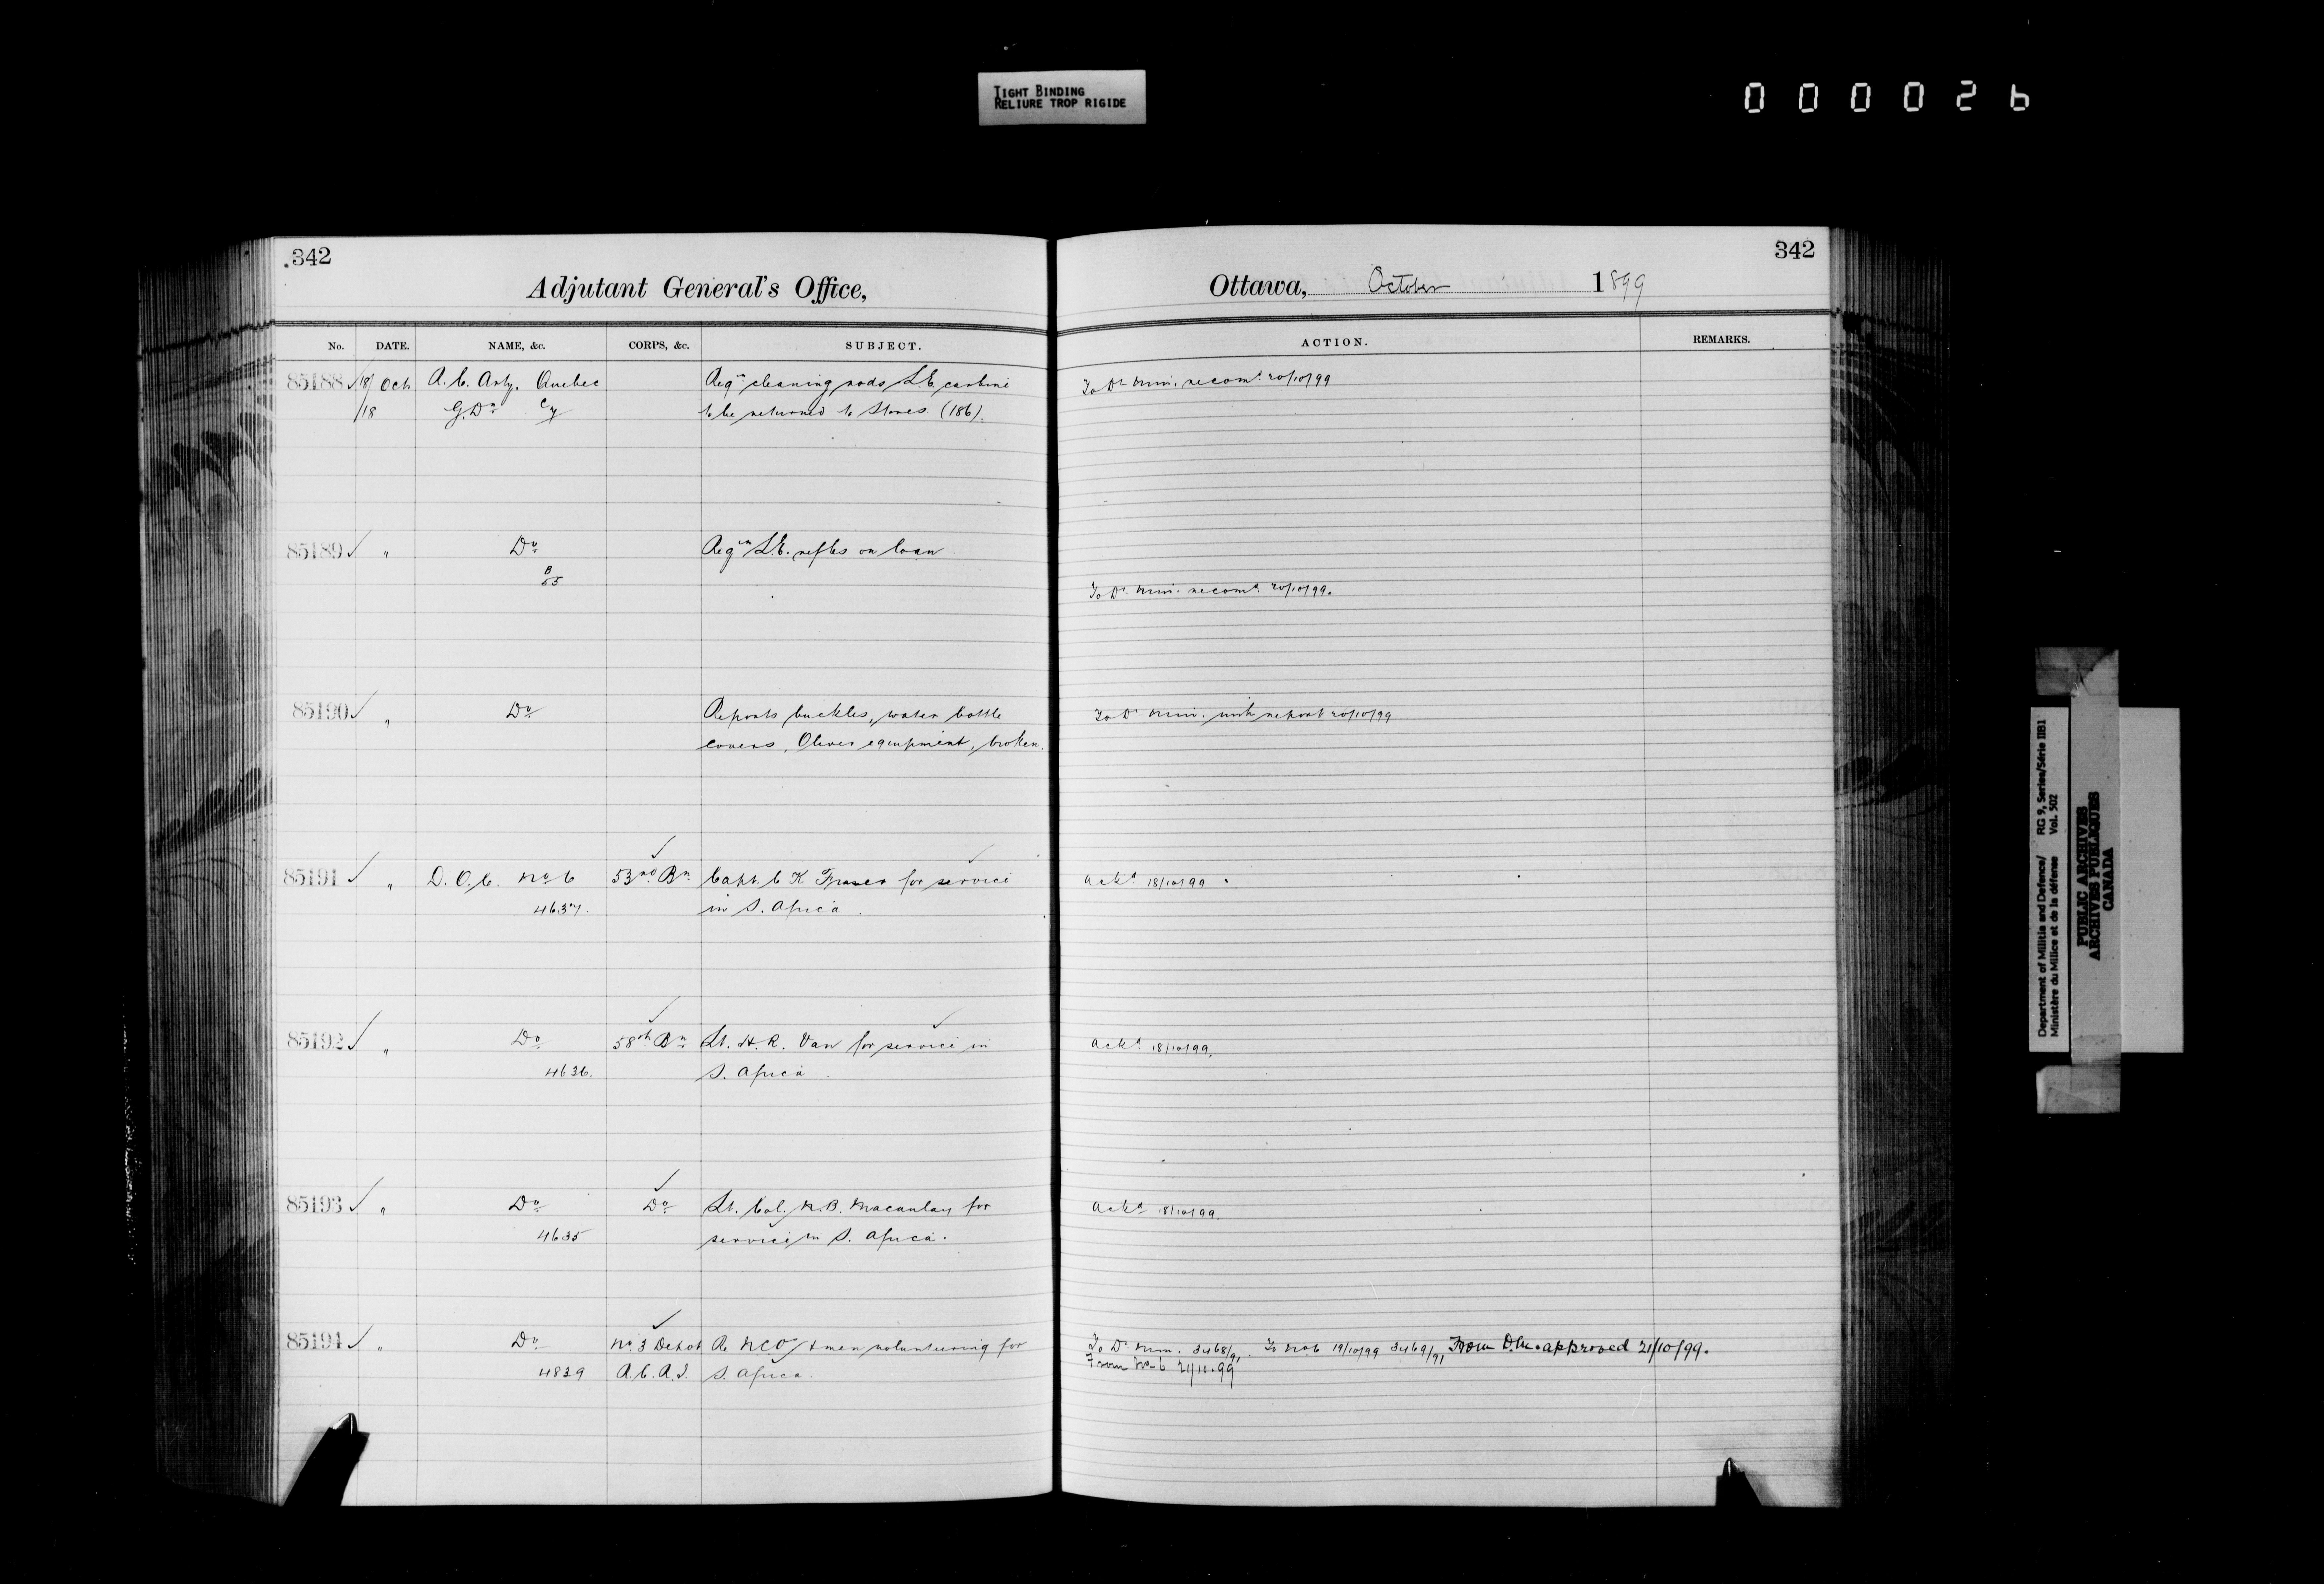 TIGHT BINDING
RELIURE TROP RIGIDE
000026
342
Adjutant General's Office,
No. DATE. NAME, &c. CORPS, &c. SUBJECT.
85188 18/ Oct R.C. Arty. Quebec Reqn cleaning rods L.E. carbine
/18 G. Dn Cy to be returned to Stores (186).
85189 " Do Reqn L.E. rifles on loan
B
55
85190 " Do Reports buckles, water bottle
covers, Oliver equipment, broken.
85191 " D.O.C. No 6 53rd Bn Capt. C K Fraser for service
4637. in S. Africa.
85192 " Do 58th Bn Lt. H.R. Van for service in
4636. S. Africa.
85193 " Do Do Lt. Col. M.B. Macaulay for
4635 service in S. Africa.
85194 " Do No. 3 Depot Re NCO's & men volunteering for
4839 R.C.R.I. S. Africa.
342
Ottawa, October 1899
ACTION. REMARKS.
To Dr Min. recomd 20/10/99
To Dr Min. recomd. 20/10/99.
To Dr Min. with report 20/10/99
Ackd 18/10/99.
Ackd 18/10/99.
Ackd 18/10/99.
To Dr Min. 3468/91. To No 6 19/10/99 3469/91 From D.M. approved 21/10/99.
From No 6 21/10.99
Department of Militia and Defence/ RG 9, Series/Série IIB1
Ministère du Milice et de la défense Vol. 502
PUBLIC ARCHIVES
ARCHIVES PUBLIQUES
CANADA